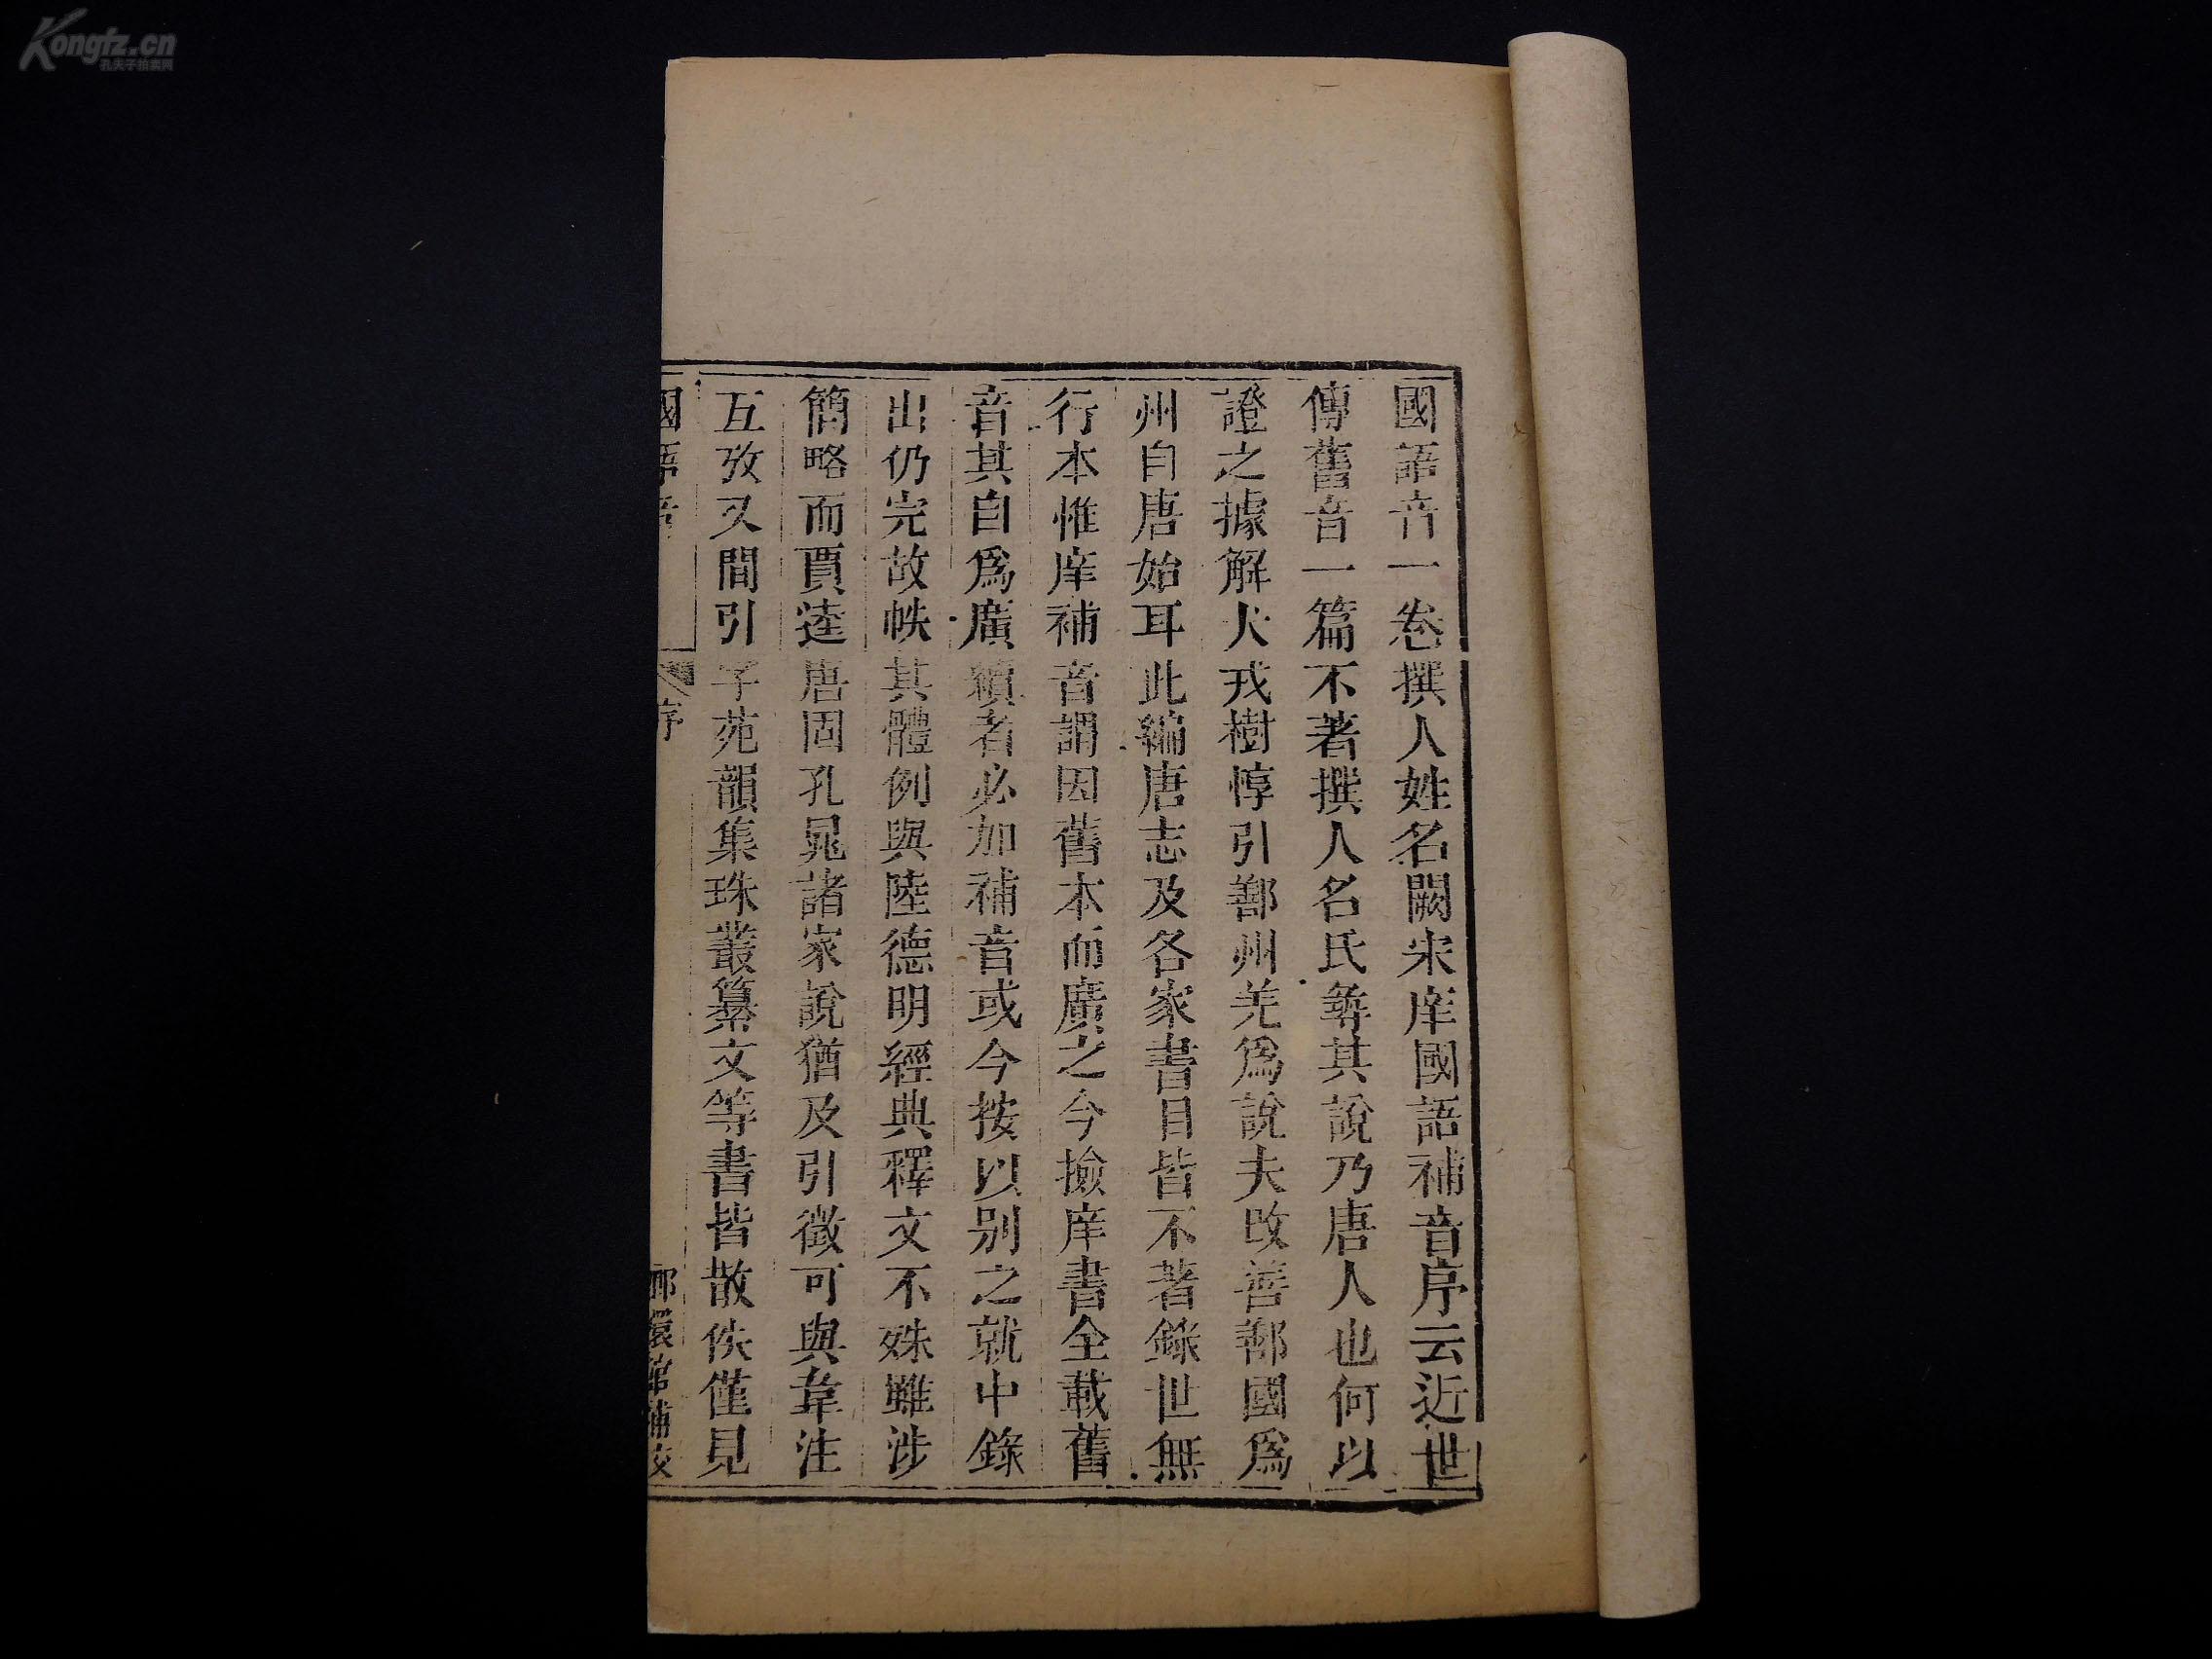 國語音一卷撰人姓名闕宋庠國語補音序云近世
傳舊音一篇不著撰人名氏尋其說乃唐人也何以
證之據解犬戎樹惇引鄯州羌爲說夫改善鄯國爲
州自唐始耳此編唐志及各家書目皆不著錄世無
行本惟庠補音謂因舊本而廣之今撿庠書全載舊
音其自爲廣續者必加補音或今按以别之就中錄
出仍完故帙其體例與陸德明經典釋文不殊雖涉
簡略而賈逵唐固孔晁諸家說猶及引徵可與韋注
互攷又間引字苑韻集珠叢纂文等書皆散佚僅見
國語音
序
嫏嬛館補校
Kongfz.cn
孔夫子拍卖网